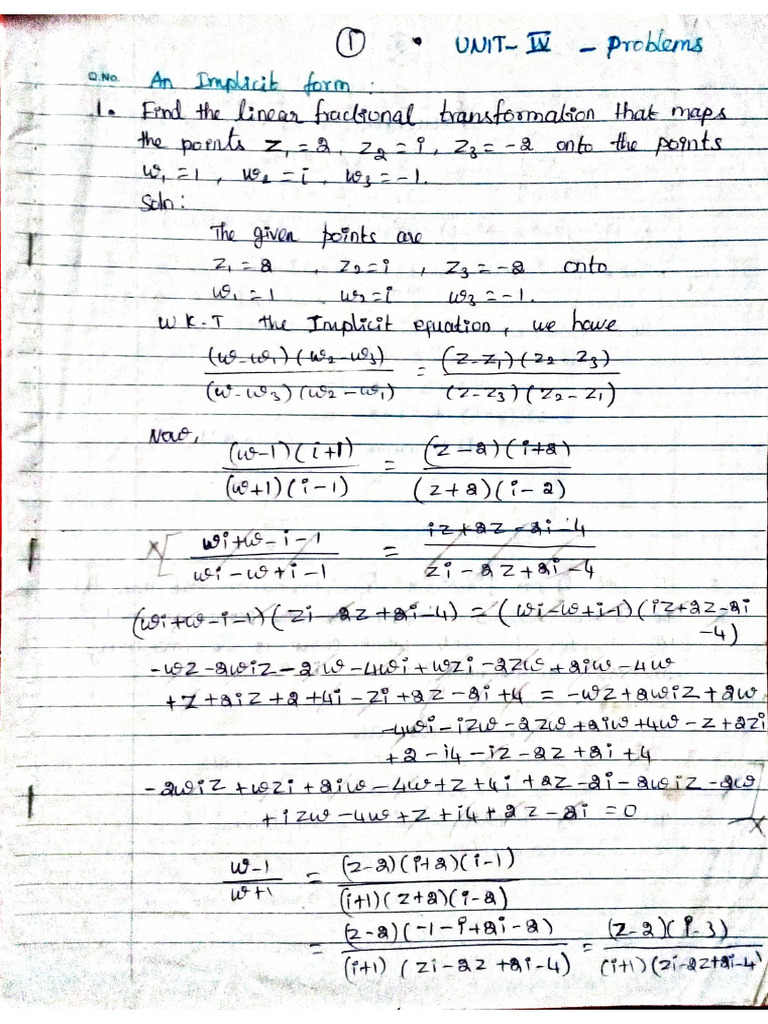 ① • UNIT-IV - Problems
Q.No. An Implicit form :
1. Find the linear fractional transformation that maps
the points z₁=2, z₂=i, z₃=-2 onto the points
w₁=1, w₂=i, w₃=-1.
Soln:
The given points are
z₁=2 , z₂=i , z₃=-2 onto
w₁=1 w₂=i w₃=-1.
W.K.T the Implicit equation, we have
(w-w₁)(w₂-w₃) / (w-w₃)(w₂-w₁) = (z-z₁)(z₂-z₃) / (z-z₃)(z₂-z₁)
Now,
(w-1)(i+1) / (w+1)(i-1) = (z-2)(i+2) / (z+2)(i-2)
x[ wi+w-i-1 / wi-w+i-1 = iz+2z-2i-4 / zi-2z+2i-4
(wi+w-i-1)(zi-2z+2i-4) = (wi-w+i-1)(iz+2z-2i
-4)
-wz-2wiz-2w-4wi+wzi-2zw+2iw-4w
+z+2iz+2+4i-zi+2z-2i+4 = -wz+2wiz+2w
-4wi-izw-2zw+2iw+4w-z+2zi
+2-i4-iz-2z+2i+4
-2wiz+wzi+2iw-4w+z+4i+2z-2i-2wiz-2w
+izw-4w+z+i4+2z-2i=0 ]x
w-1 / w+1 = (z-2)(i+2)(i-1) / (i+1)(z+2)(i-2)
= (z-2)(-1-i+2i-2) / (i+1)(zi-2z+2i-4) = (z-2)(i-3) / (i+1)(zi-2z+2i-4)